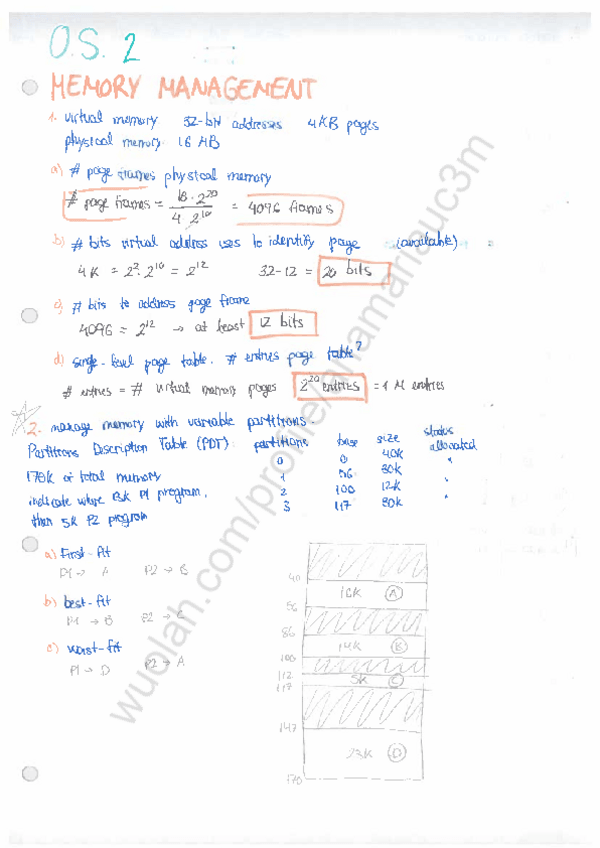 O.S. 2
MEMORY MANAGEMENT
1. virtual memory 32-bit addresses 4KB pages
physical memory 16 MB
a) # page frames physical memory
# page frames = 16·2^20 / 4·2^10 = 4096 frames
b) # bits virtual address uses to identify page (available)
4K = 2^2·2^10 = 2^12 32-12 = 20 bits
c) # bits to address page frame
4096 = 2^12 → at least 12 bits
d) single-level page table. # entries page table?
# entries = # virtual memory pages 2^20 entries = 1 M entries
2. manage memory with variable partitions.
Partitions Description Table (PDT) partitions base size status
0 0 40K allocated
170K of total memory 1 56 30K "
indicate where 13K P1 program, 2 100 12K "
then 5K P2 program 3 117 30K "
a) First-fit
P1 → A P2 → B
b) best-fit
P1 → B P2 → C
c) worst-fit
P1 → D P2 → A
40
16K A
56
86
14K B
100
112
5K C
117
147
23K D
170
wuolah.com/profile/anamariauc3m